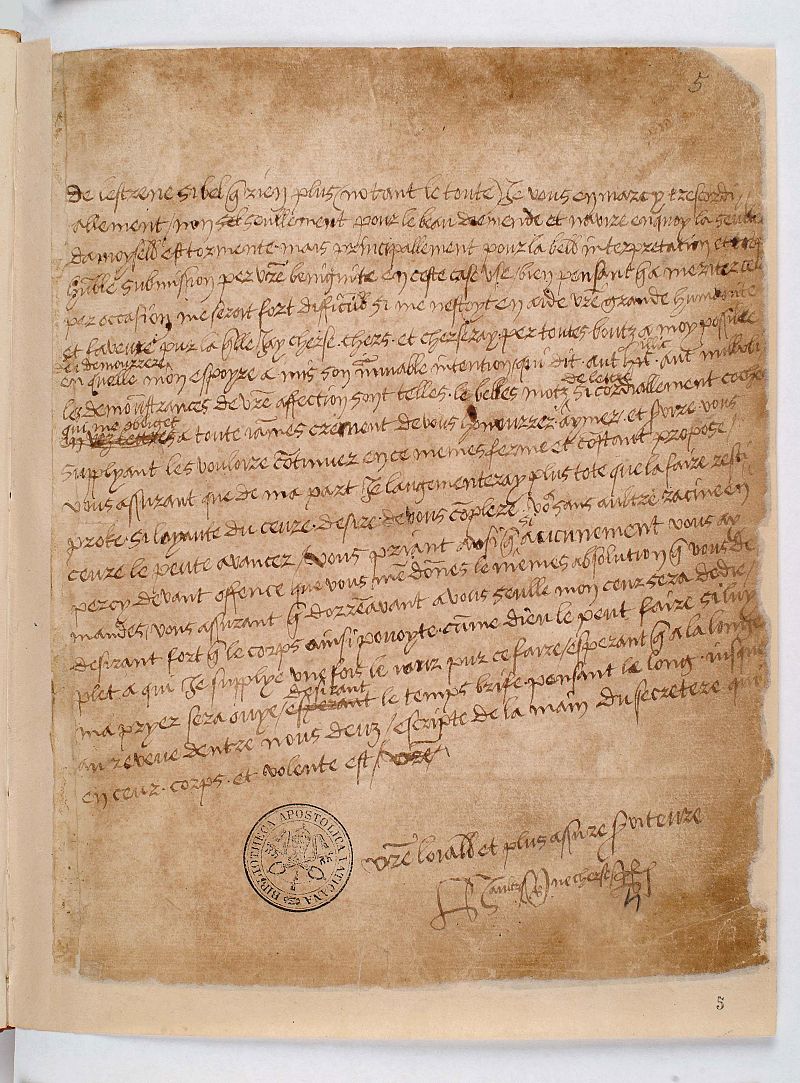 5
De lestrene si bel q̃ rien plus / notant le toute / Je vous en marcy tres cordi
allement / non seullement pour le beau diemende et navire en quoy la seulette
damoyselle est tormente mais principallement pour la belle interpretation et
humble submission per vr̃e benignite en ceste case use / bien pensant q̃ a meriter cela
per occasion me seroit fort difficile si me nestoyt en aide vr̃e grande humanite
et faveur pur la quelle Jay cherse. chers. et cherseray. per toutes bontz a moy possible
de i demourrere
en quelle mon espoyre a mis son immuable intention. qui dit aut illic aut nullibi
les demonstrances de vr̃e affection sont telles. le belles motz de lettre si cordiallement couches
qui me obliget
en vez lettres a toute iames vrement de vous honourrer aymer. et servire vous
supplyant les vouloire continuer en ce memes ferme et constant propose /
vous assurant que de ma part Je laugementeray plus tote que la faire resi
proke. si loyaute du ceure. desire de vous complere. vo9 sans aultre racine en
ceure le peute avancer / vous priant ausi q̃ si aucunement vous ay
percy devant offence que vous me donnes le memes absolution q̃ vous de
mandes / vous assurant q̃ dorrenavant a vous seulle mon ceur sera dedie /
desirant fort q̃ le corps ainsi pouoyte. came dieu le peut faire si luy
plet a qui Je supplye une fois le iour pur ce faire / esperant q̃ a la longe
ma pryer sera ouye / esperant desirant le temps brife pensant le long iusque
au reveue dentre nous deuz / escripte de la main du secretere qui
en ceur. corps. et volente est / vr̃e
vr̃e loiall et plus assure serviteure
H aultre ne cherse R
BIBLIOTHECA APOSTOLICA VATICANA
5